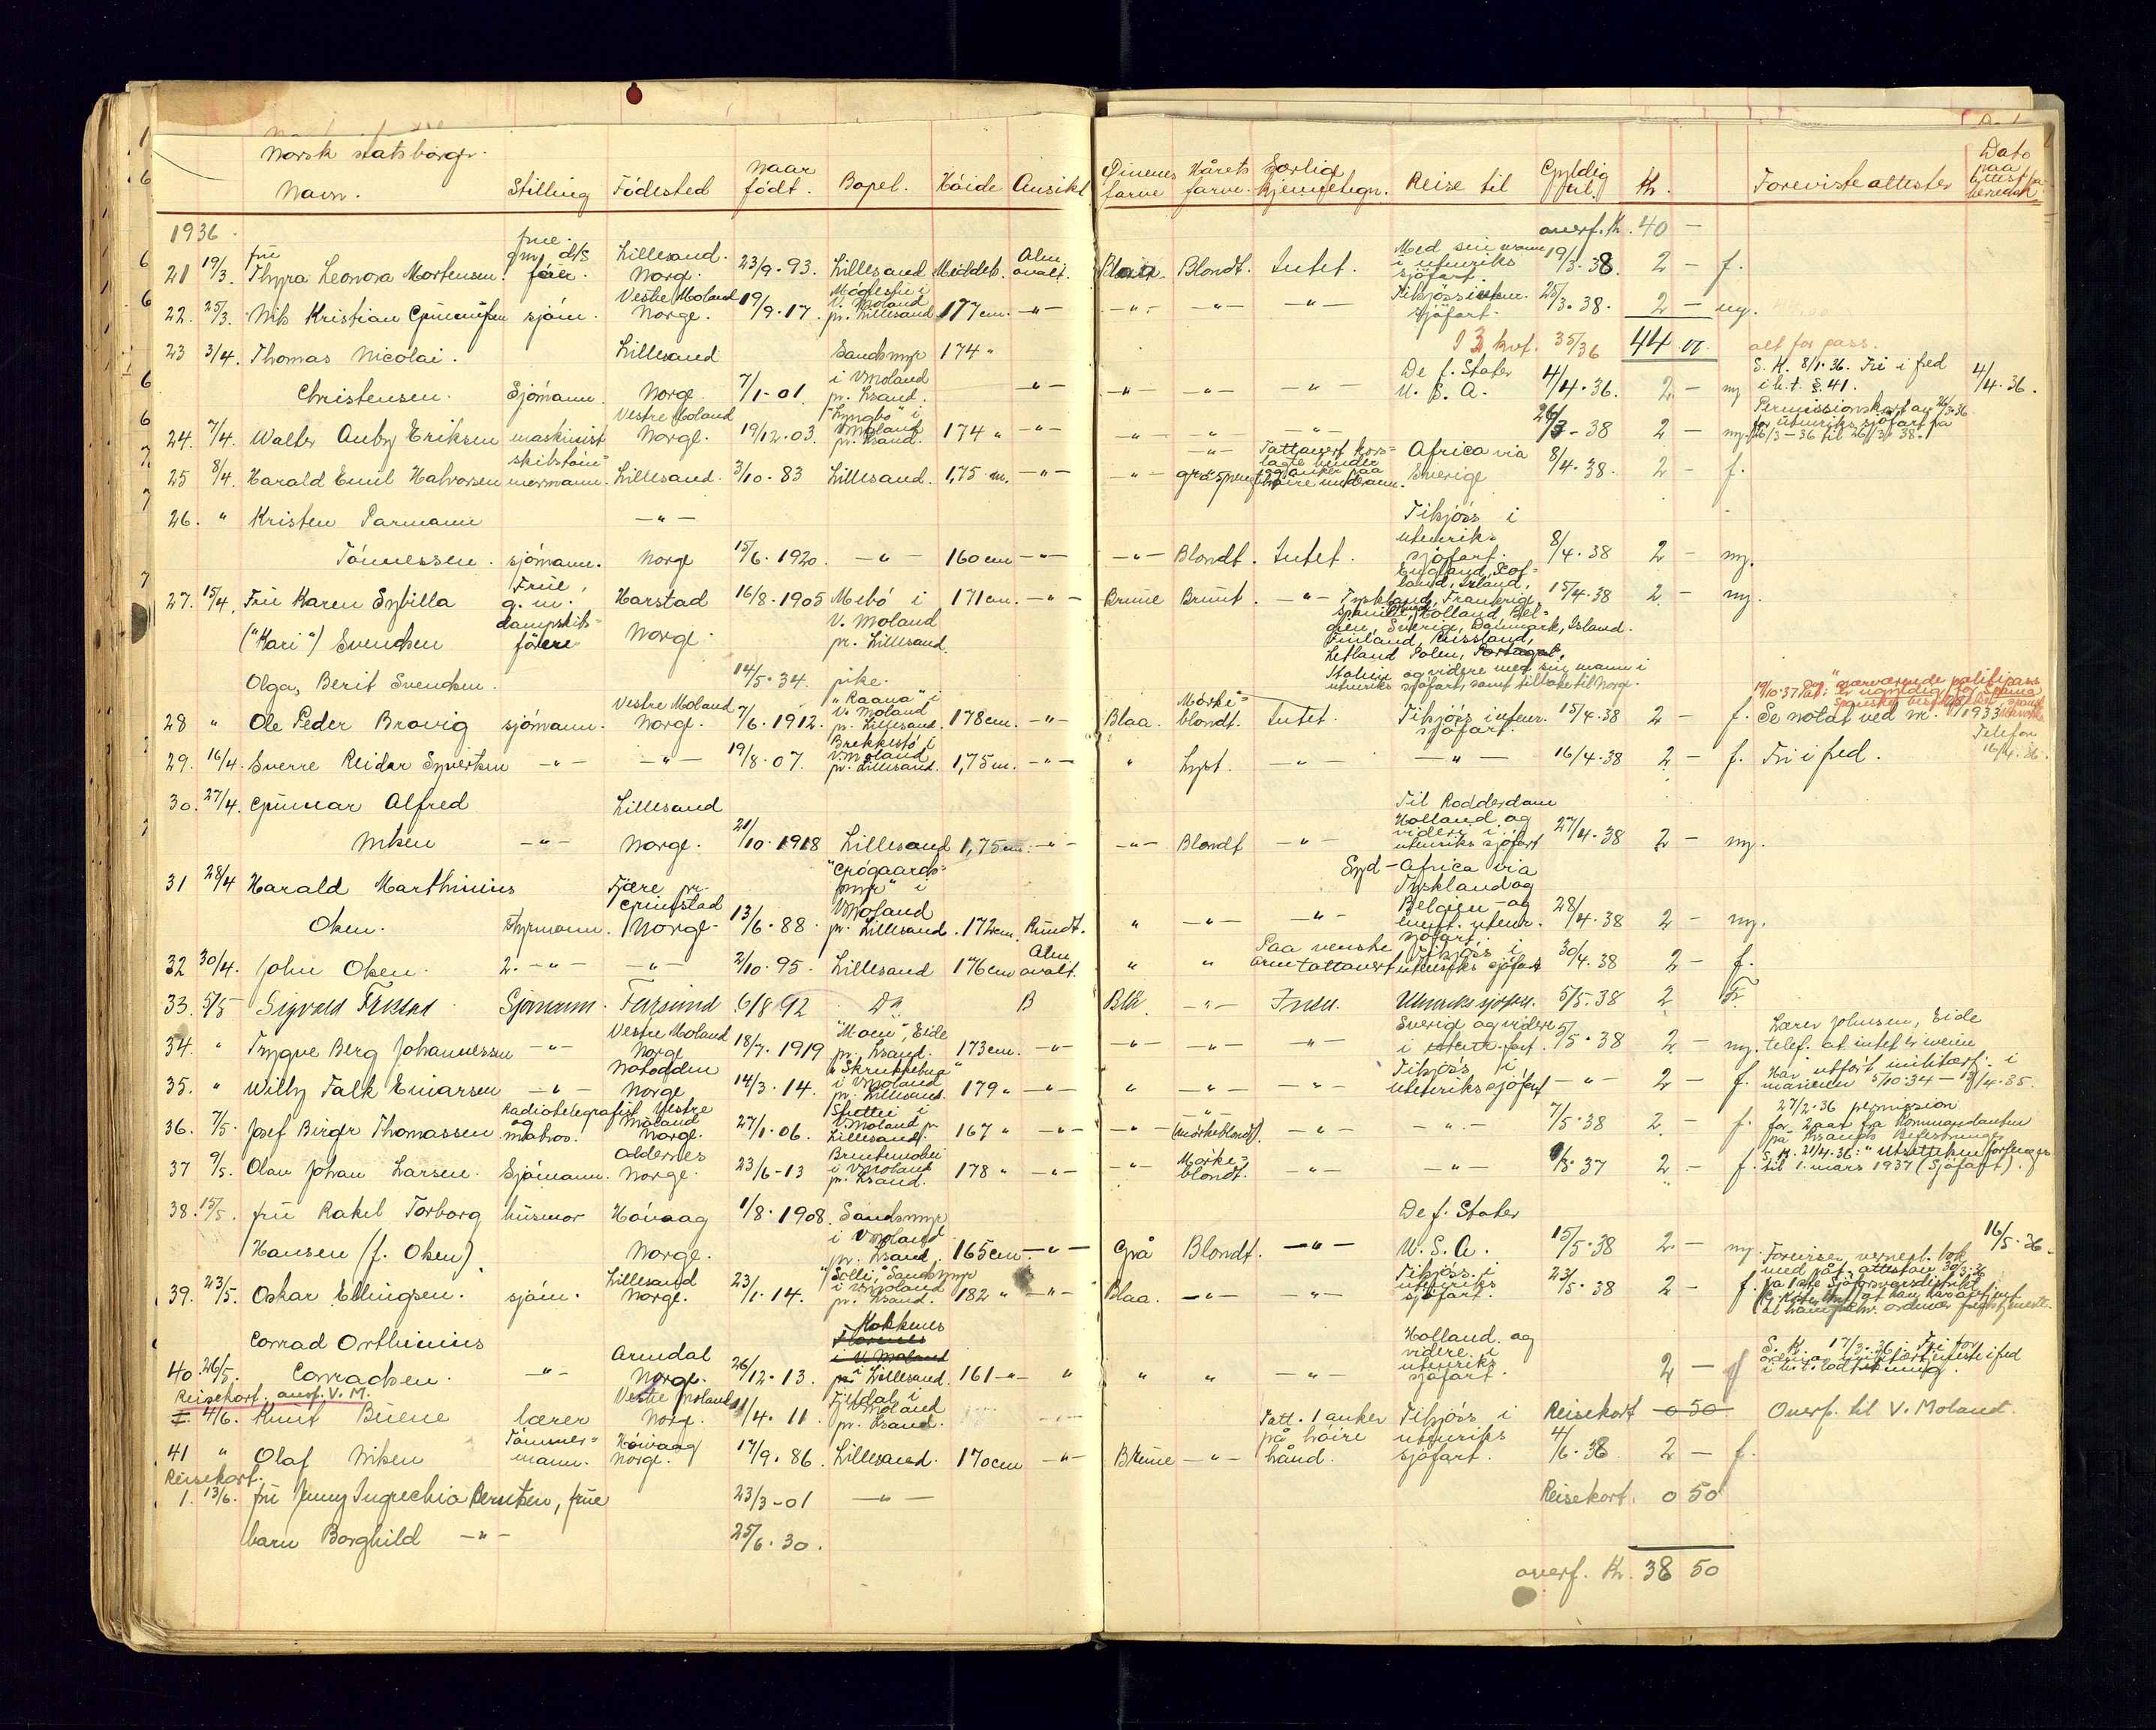 Norsk statsborger.
Navn. Stilling Födested Naar födt. Bopel. Höide Ansikt Öinenes farve Hårets farve. Særlige kjennetegn. Reise til Gyldig til. Kr. Foreviste attester Dato paa attest
1936.
overf. Kr. 40 —
21 19/3. fru Thyra Leonora Mortensen. frue. gm. d/s förer. Lillesand. Norge. 23/9. 93. Lillesand Middels. Alm. ovalt. Blaa Blondt. Intet. Med sin mann i utenriks sjöfart. 19/3. 38. 2 — f.
22. 25/3. Nils Kristian sjöm. Vestre Moland Norge. 19/9. 17. V. Moland pr. Lillesand 177 cm. —"— —"— —"— —"— Tilsjöss i uten. sjöfart. 25/3. 38. 2 — ny.
kvf. 35/36 44 00 alt for pass.
23 3/4. Thomas Nicolai Christensen. Sjömann. Lillesand Norge. 7/1-01. Sandsmyr i V Moland pr. Lsand. 174 " —"— —"— —"— —"— De f. Stater U. S. A. 4/4. 36. 2 — ny S. K. 8/1. 36. Fri i fred i h. t. §. 41. 4/4. 36.
24. 7/4. Walter Auby Eriksen maskinist Vestre Moland Norge. 19/12. 03. "Lyngbo" i V Moland pr. Lsand. 174 " —"— —"— —"— —"— 26/3 - 38 2 — ny. Permissionskort av 26/3-36 for utenriks sjöfart fra 26/3-36 til 26/3 38.
25 8/4. Harald Emil Halvorsen skibstömmermann. Lillesand. 3/10. 83 Lillesand. 1,75 m. —"— —"— gråsprengt Tattovert kors= lagte hender og anker paa höire underarm. Africa via Sverige 8/4. 38. 2 — f.
26. " Kristen Parmann Tönnessen. sjömann. —"— Norge 15/6. 1920. —"— 160 cm —"— —"— Blondt. Intet. Tilsjöss i utenriks sjöfart. 8/4. 38 2 — ny.
27. 15/4. Fru Karen Sybilla ("Kari") Svendsen Frue, g. m. dampskibs= förere Harstad Norge. 16/8. 1905 Mebö i V. Moland pr. Lillesand. 171 cm. —"— Brune Brunt. —"— England, Skot= land, Irland, Tyskland, Frankrig, Spania, Holland, Bel= gien, Sverig, Danmark, Island. Finland, Russland, Letland Polen, Portugal, Italien og videre med sin mann i utenriks sjöfart, samt tilbake til Norge. 15/4. 38 2 — ny.
Olga, Berit Svendsen. 14/5. 34. pike.
28 " Ole Peder Brovig sjömann. Vestre Moland Norge. 7/6. 1912. "Raana" i V. Moland pr. Lillesand. 178 cm. —"— Blaa. Mörke= blondt. Intet. Tilsjöss i uten. sjöfart. 15/4. 38 2 — f. Se notat ved nr. 1933
29. 16/4. Sverre Reidar Syvertsen —"— —"— 19/8. 07. Brekkestö i V. Moland pr. Lillesand. 1,75 m. —"— " Lyst. —"— —"— 16/4. 38 2 — f. Fri i fred. Telefon 16/4. 36.
30. 27/4. Gunnar Alfred Nilsen —"— Lillesand Norge. 21/10. 1918 Lillesand 1,75 cm. —"— —"— Blondt —"— Til Rodderdam Holland og videre i utenriks sjöfart 27/4. 38 2 — ny.
31 28/4 Harald Marthinius Olsen. styrmann. Fjære pr. Grimstad Norge. 13/6. 88. "Grögaards= myr" i V Moland pr. Lillesand. 172 cm. Rundt. " —"— —"— Syd-Africa via Tyskland og Belgien og sjöfart. 28/4. 38 2 — ny.
32 30/4. John Olsen. 2. —"— —"— 2/10. 95. Lillesand 176 cm Alm. ovalt. " " Paa venstre arm tattovert Tilsjöss i utenriks sjöfart 30/4. 38 2 — f.
33. 5/5 Sigvald Sjömann. Farsund 6/8 92 Do. B Blå —"— Inten. Utenriks sjöfart. 5/5. 38 2 F.
34. " Trygve Berg Johannessen —"— Vestre Moland Norge 18/7. 1919 "Moen", Eide pr. Lsand. 173 cm. —"— —"— —"— —"— Sverig og videre i uten. fart. 5/5. 38 2 — ny. Lærer Johnsen, Eide telef. at intet er iveien
35. " Willy Falk Einarsen —"— Notodden Norge 14/3. 14. i V Moland pr. Lillesand. 179 " —"— " —"— —"— Tilsjöss i utenriks sjöfart —"— 2 — f. Har utfört militærtj. i marinen 5/10. 34 — 4. 35.
36. 7/5. Josef Birger Thomassen Radiotelegrafist og matros. Vestre Moland Norge. 27/1. 06. V. Moland pr. Lillesand. 167 " —"— —"— —"— (mörkeblondt). —"— —"— 7/5. 38 2. — f. 27/2. 36 permission for 2 aar fra Kommandanten på Krsands Befestninger
37 9/5. Olav Johan Larsen. Sjömann. Norge. 23/6-13 i V Moland pr. Lsand. 178 " —"— —"— Mörke= blondt. —"— —"— 37 2 — f. S. K. 21/4. 36: "Utsettelsen forlenges til 1. mars 1937 (Sjöfart).
38. 15/5. fru Rakel Torborg Hansen (f. Olsen). husmor Hövaag Norge. 1/8. 1908. Sandsmyr i V Moland pr. Lsand. 165 cm. —"— Grå Blondt. —"— De f. Stater U. S. A. 15/5. 38 2 — ny. 16/5. 36.
39. 23/5. Oskar Ellingsen. sjöm. Lillesand Norge. 23/1. 14. "Solli," Sandsmyr i V Moland pr. Lsand. 182 " —"— Blaa. —"— —"— Tilsjöss i utenriks sjöfart. 23/5. 38 2 — f. Foreviser vernepl. bok med påt. attestan 30/3. 36
40. 26/5. Conrad Orthinius Conradsen. —"— Arendal Norge. 26/12. 13. Kokkenes i Lillesand. 161 —"— " " " —"— Holland og videre i utenriks sjöfart. 2 — f S. K. 17/3. 36: Fri for
Reisekort. ansf. V. M.
I. 4/6. Knut Buene lærer Vestre Moland Norg. 4. 11. i V Moland pr. Lsand. Tatt. 1 anker på höire hånd. Tilsjöss i utenriks sjöfart. Reisekort 0 50 Overf. til V. Moland.
41 " Olaf Nilsen Tömmer= mann. Hövaag Norge. 17/9. 86. Lillesand. 170 cm —"— Brune —"— 4/6. 38 2 — f.
Reisekort.
1. 13/6. fru Jenny Ingrechia Berntsen, frue 23/3-01 —"— Reisekort. 0 50
barn Borghild —"— 25/6. 30.
overf. Kr. 38 50